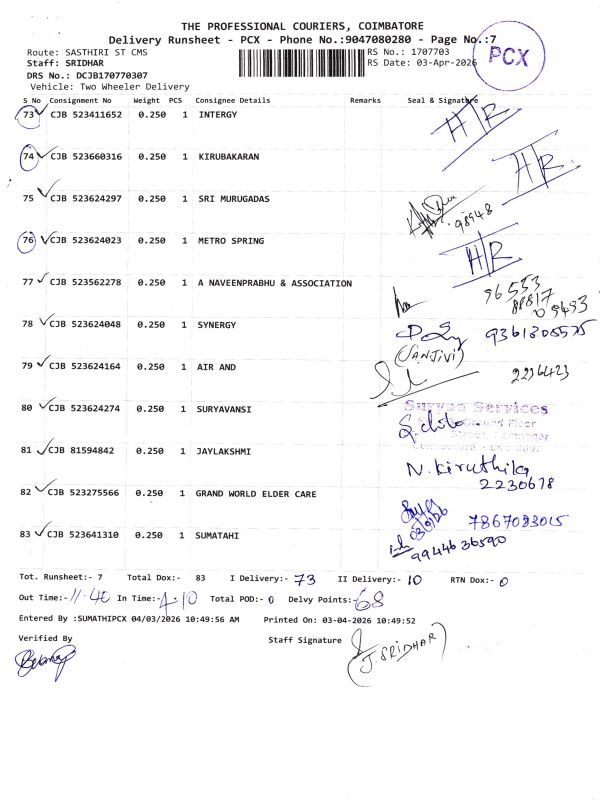 THE PROFESSIONAL COURIERS, COIMBATORE
Delivery Runsheet - PCX - Phone No.:9047080280 - Page No.:7
PCX
Route: SASTHIRI ST CMS
RS No.: 1707703
Staff: SRIDHAR
RS Date: 03-Apr-2026
DRS No.: DCJB170770307
Vehicle: Two Wheeler Delivery
S No Consignment No Weight PCS Consignee Details Remarks Seal & Signature
73 CJB 523411652 0.250 1 INTERGY H/R
74 CJB 523660316 0.250 1 KIRUBAKARAN H/R
75 CJB 523624297 0.250 1 SRI MURUGADAS 98948
76 CJB 523624023 0.250 1 METRO SPRING H/R
77 CJB 523562278 0.250 1 A NAVEENPRABHU & ASSOCIATION 96553
88817
09493
78 CJB 523624048 0.250 1 SYNERGY 9361305575
(SANJIVI)
79 CJB 523624164 0.250 1 AIR AND 2236423
80 CJB 523624274 0.250 1 SURYAVANSI
Suryaa Services
Ground Floor
81 CJB 81594842 1 JAYLAKSHMI N. Kiruthika
2230678
82 CJB 523275566 0.250 1 GRAND WORLD ELDER CARE 7867093015
83 CJB 523641310 0.250 1 SUMATAHI 9944636590
Tot. Runsheet:- 7 Total Dox:- 83 I Delivery:- 73 II Delivery:- 10 RTN Dox:- 0
Out Time:- 11.40 In Time:- 4.10 Total POD:- 0 Delvy Points:- 68
Entered By :SUMATHIPCX 04/03/2026 10:49:56 AM Printed On: 03-04-2026 10:49:52
Verified By
Staff Signature
(J. SRIDHAR)